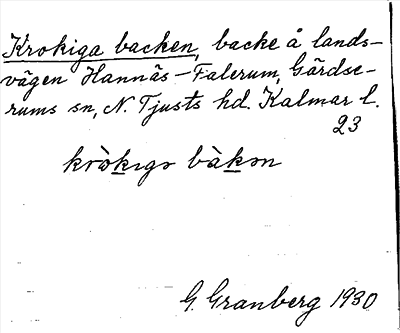 Krokiga backen, backe å lands-
vägen Hannäs–Falerum, Gärdse-
rums sn, N. Tjusts hd. Kalmar l.
23
krò̀kıgə bàkən
G. Granberg 1930